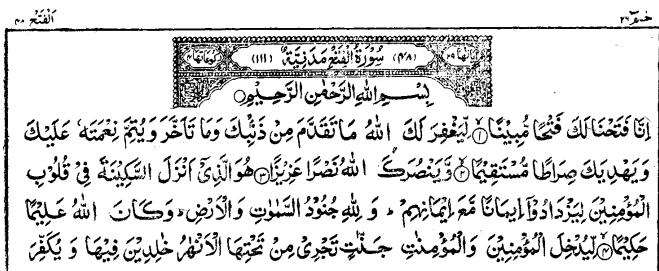 حٰمٓ ٢٦ الفتح ٤٨
اٰیاتها ٢٩ (٤٨) سُوْرَةُ الْفَتْحِ مَدَنِیَّةٌ (١١١) رکوعاتها ٤
بِسْمِ اللهِ الرَّحْمٰنِ الرَّحِیْمِ
اِنَّا فَتَحْنَا لَكَ فَتْحًا مُّبِیْنًا ۝١ لِّیَغْفِرَ لَكَ اللهُ مَا تَقَدَّمَ مِنْ ذَنْۢبِكَ وَمَا تَاَخَّرَ وَیُتِمَّ نِعْمَتَهٗ عَلَیْكَ
وَیَهْدِیَكَ صِرَاطًا مُّسْتَقِیْمًا ۝٢ وَّیَنْصُرَكَ اللهُ نَصْرًا عَزِیْزًا ۝٣ هُوَ الَّذِیْۤ اَنْزَلَ السَّكِیْنَةَ فِیْ قُلُوْبِ
الْمُؤْمِنِیْنَ لِیَزْدَادُوْۤا اِیْمَانًا مَّعَ اِیْمَانِهِمْ ؕ وَلِلّٰهِ جُنُوْدُ السَّمٰوٰتِ وَالْاَرْضِ ؕ وَكَانَ اللهُ عَلِیْمًا
حَكِیْمًا ۝٤ لِّیُدْخِلَ الْمُؤْمِنِیْنَ وَالْمُؤْمِنٰتِ جَنّٰتٍ تَجْرِیْ مِنْ تَحْتِهَا الْاَنْهٰرُ خٰلِدِیْنَ فِیْهَا وَیُكَفِّرَ